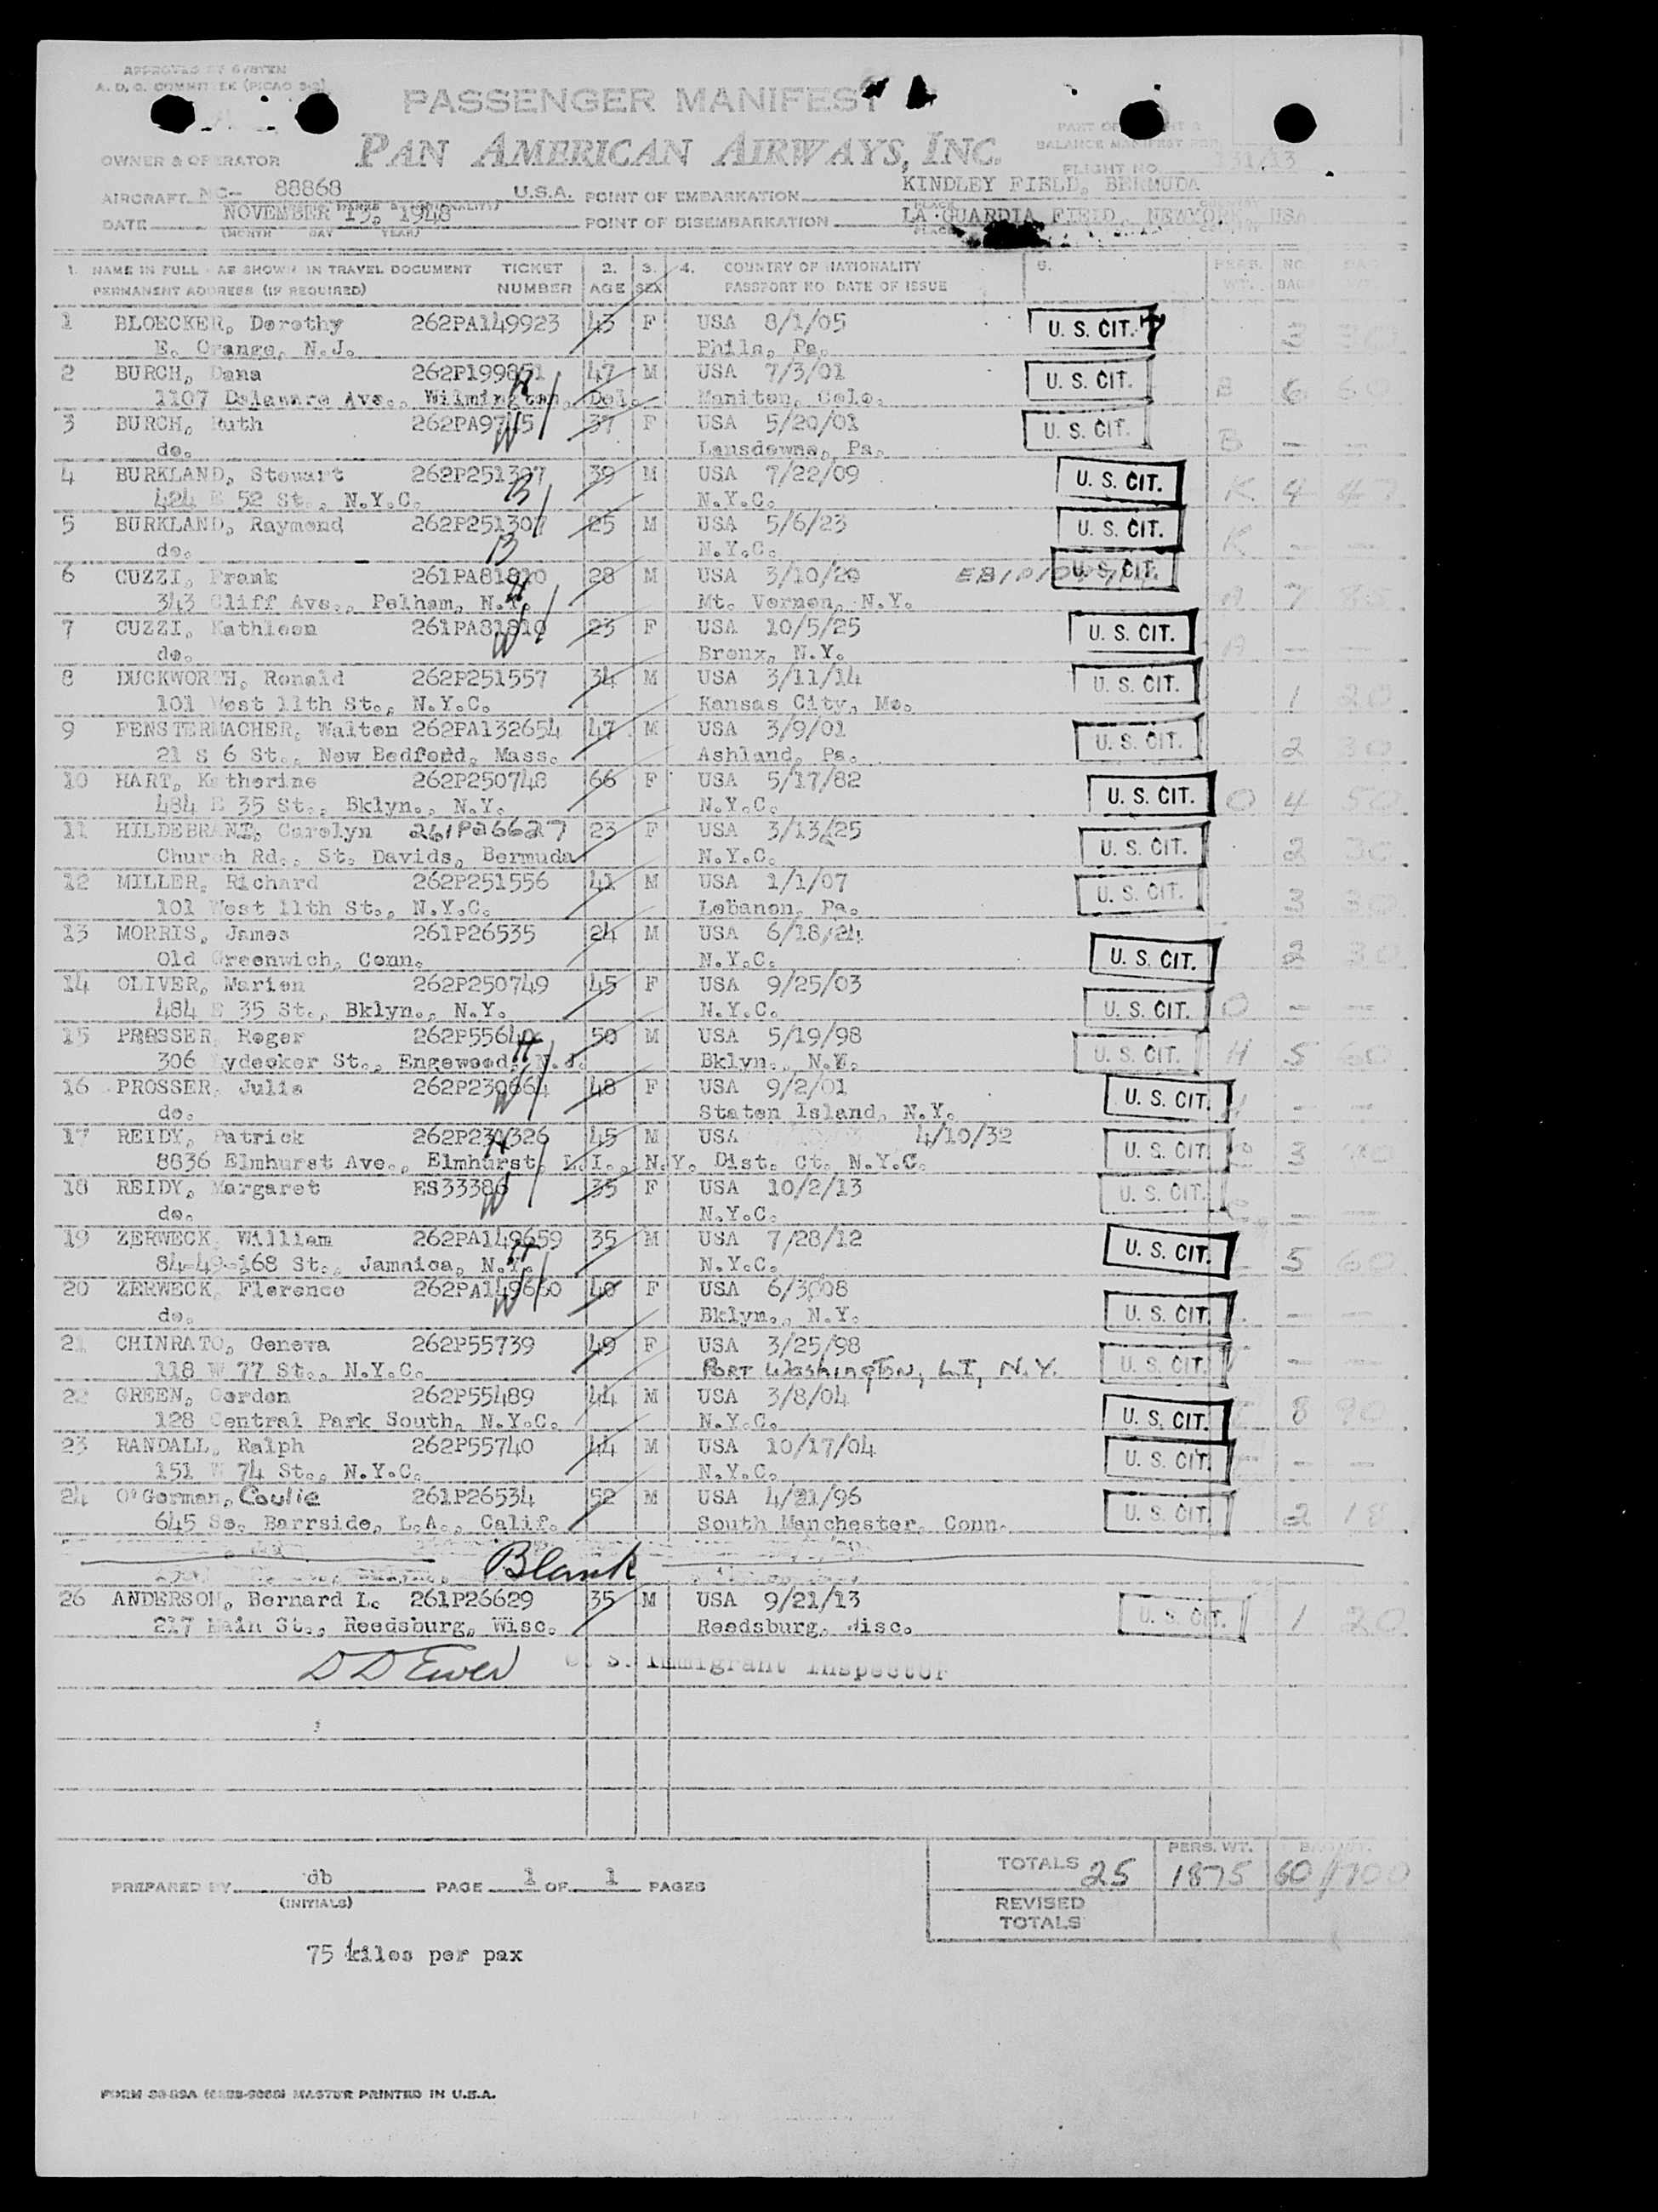 APPROVED BY SYSTEM
A. D. C. COMMITTEE (PICAO
PASSENGER MANIFEST
PAN AMERICAN AIRWAYS, INC.
PART OF
BALANCE MANIFEST FOR
OWNER & OPERATOR
FLIGHT NO. 131/13
AIRCRAFT NC- 88868 U.S.A. POINT OF EMBARKATION KINDLEY FIELD, BERMUDA
DATE NOVEMBER 15, 1948 POINT OF DISEMBARKATION LA GUARDIA FIELD, NEWYORK, USA
(MONTH DAY YEAR) PLACE
1. NAME IN FULL - AS SHOWN IN TRAVEL DOCUMENT TICKET 2. 3. 4. COUNTRY OF NATIONALITY 6. PERS. NO.
PERMANENT ADDRESS (IF REQUIRED) NUMBER AGE SEX PASSPORT NO. DATE OF ISSUE WT. BAG
1 BLOECKER, Dorothy 262PA149923 43 F USA 8/1/05 U. S. CIT. 3 30
E. Orange, N.J. Phila, Pa.
2 BURCH, Dana 262P199851 47 M USA 7/3/01 U. S. CIT. B 6 60
1107 Delaware Ave., Wilmington, Del. H Maniton, Colo.
3 BURCH, Ruth 37 F USA 5/20/01 U. S. CIT. B — —
do. W Lansdowne, Pa.
4 BURKLAND, Stewart 262P251307 39 M USA 7/22/09 U. S. CIT. K 4 47
424 E 52 St., N.Y.C. B N.Y.C.
5 BURKLAND, Raymond 262P251307 25 M USA 5/6/23 U. S. CIT. K — —
do. B N.Y.C.
6 CUZZI, Frank 261PA81810 28 M USA 3/10/20 U. S. CIT. 7
343 Cliff Ave., Pelham, N.Y. H Mt. Vernon, N.Y.
7 CUZZI, Kathleen 261PA81810 23 F USA 10/5/25 U. S. CIT. — —
do. W Bronx, N.Y.
8 DUCKWORTH, Ronald 262P251557 34 M USA 3/11/14 U. S. CIT. 1 20
101 West 11th St., N.Y.C. Kansas City, Mo.
9 FENSTERMACHER, Walton 262PA132654 47 M USA 3/9/01 U. S. CIT. 2 30
21 S 6 St., New Bedford, Mass. Ashland, Pa.
10 HART, Katherine 262P250748 66 F USA 5/17/82 U. S. CIT. O 4 50
484 E 35 St., Bklyn., N.Y. N.Y.C.
11 HILDEBRANT, Carolyn 261Pa6627 23 F USA 3/13/25 U. S. CIT. 2 30
Church Rd., St. Davids, Bermuda N.Y.C.
12 MILLER, Richard 262P251556 41 M USA 1/1/07 U. S. CIT. 3 30
101 West 11th St., N.Y.C. Lebanon, Pa.
13 MORRIS, James 261P26535 24 M USA 6/18/24 U. S. CIT. 2 30
Old Greenwich, Conn. N.Y.C.
14 OLIVER, Marion 262P250749 45 F USA 9/25/03 U. S. CIT. O — —
484 E 35 St., Bklyn., N.Y. N.Y.C.
15 PROSSER, Roger 50 M USA 5/19/98 U. S. CIT. H 5 60
306 Lydecker St., Engewood, N.J. H Bklyn., N.Y.
16 PROSSER, Julia 262P230664 48 F USA 9/2/01 U. S. CIT. H — —
do. W Staten Island, N.Y.
17 REIDY, Patrick 262P230326 45 M USA 4/19/32 U. S. CIT. 3
8836 Elmhurst Ave., Elmhurst, L.I., N.Y. Dist. Ct. N.Y.C.
18 REIDY, Margaret ES33386 35 F USA 10/2/13 U. S. CIT. — —
do. W N.Y.C.
19 ZERWECK, William 262PA149659 35 M USA 7/28/12 U. S. CIT. 5 60
84-49-168 St., Jamaica, N.Y. H N.Y.C.
20 ZERWECK, Florence 262PA149660 40 F USA 6/3/08 U. S. CIT. — —
do. W Bklyn., N.Y.
21 CHINRATO, Geneva 262P55739 49 F USA 3/25/98 U. S. CIT. — —
118 W 77 St., N.Y.C. PORT WASHINGTON, L.I, N.Y.
22 GREEN, Gordon 262P55489 44 M USA 3/8/04 U. S. CIT. 8 90
128 Central Park South, N.Y.C. N.Y.C.
23 RANDALL, Ralph 262P55740 44 M USA 10/17/04 U. S. CIT. — —
151 W 74 St., N.Y.C. N.Y.C.
24 O'Gorman, Coulie 261P26534 52 M USA 4/21/96 U. S. CIT. 2 18
645 So. Barrside, L.A., Calif. South Manchester, Conn.
Blank
26 ANDERSON, Bernard L. 261P26629 35 M USA 9/21/13 U. S. CIT. 1 20
217 Main St., Reedsburg, Wisc. Reedsburg, Wisc.
D D Ewer U. S. Immigrant Inspector
PERS. WT.
TOTALS 25 1875 60/700
PREPARED BY db PAGE 1 OF 1 PAGES
(INITIALS)
REVISED
TOTALS
75 kilos per pax
MASTER PRINTED IN U.S.A.